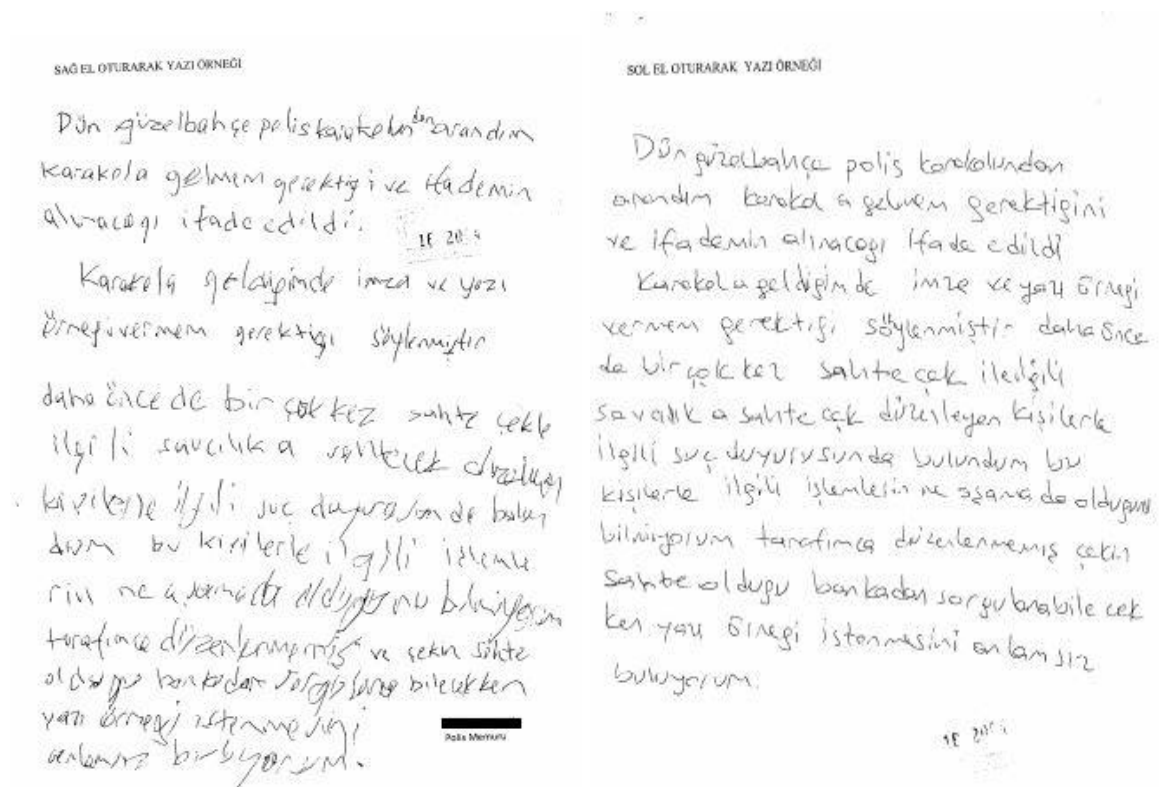 SAĞ EL OTURARAK YAZI ÖRNEĞİ
Dün güzelbahçe polis karakolundan arandım
karakola gelmem gerektiği ve ifademin
alınacagı ifade edildi.
Karakola geldiginde imza ve yazı
örnegi vermem gerektigi söylenmiştir
daha önce de bir çok kez sahte çekle
ilgili savcılık a sahtecek düzenleyen
kişilerle ilgili suç duyurusunda bulun
dum bu kişilerle ilgili işlemle
rin ne aşamada oldugunu bilmiyorum
tarafımca düzenlenmemiş ve çekin sahte
oldugu bankadan sorgulana bilecekken
yazı örnegi istenmesini
anlamsız buluyorum.
Polis Memuru
SOL EL OTURARAK YAZI ÖRNEĞİ
Dün güzelbahçe polis karakolundan
arandım karakol a gelmem gerektigini
ve ifademin alınacagı ifade edildi
Karakol a geldigimde imza ve yazı örnegi
vermem gerektigi söylenmiştir daha önce
de bir çok kez sahte çek ile ilgili
savcılık a sahte çek düzenleyen kişilerle
ilgili suç duyurusunda bulundum bu
kişilerle ilgili işlemlerin ne aşamada oldugunu
bilmiyorum tarafımca düzenlenmemiş çekin
sahte oldugu bankadan sorgulanabile cek
ken yazı örnegi istenmesini anlamsız
buluyorum.